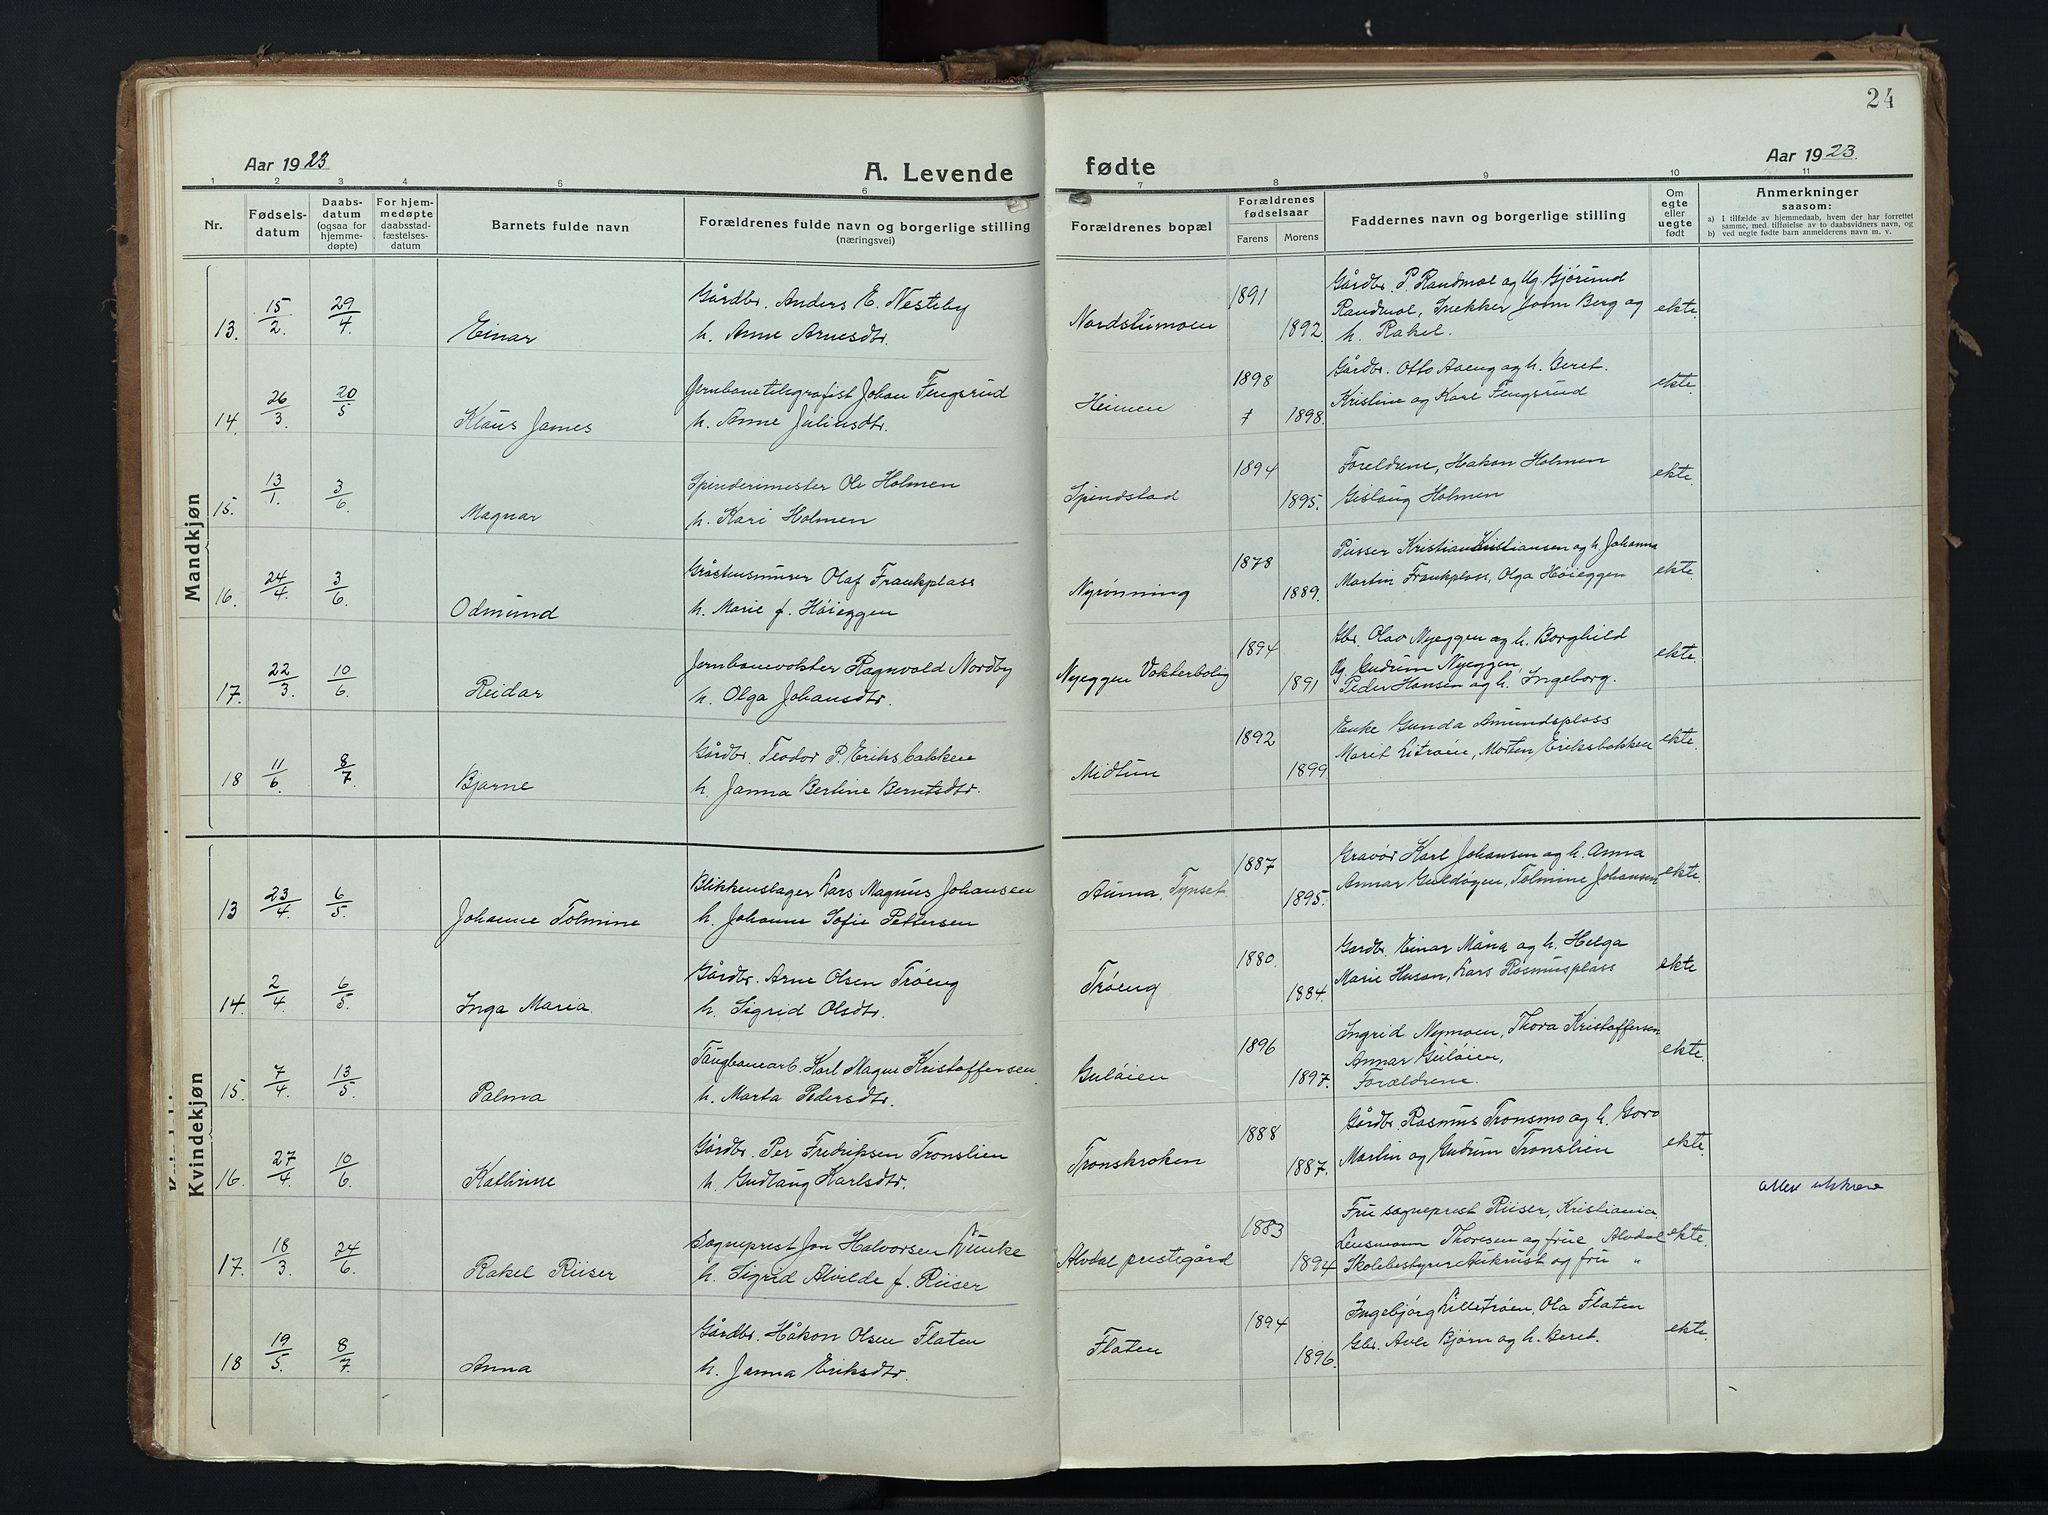 24
Aar 1923
A. Levende
fødte
Aar 1923.
1 2 3 4 5 6 7 8 9 10 11
Nr.
Fødsels-
datum
Daabs-
datum
(ogsaa for
hjemme-
døpte)
For hjem-
medøpte
daabsstad-
fæstelses-
datum
Barnets fulde navn
Forældrenes fulde navn og borgerlige stilling
(næringsvei)
Forældrenes bopæl
Forældrenes
fødselsaar
Farens
Morens
Faddernes navn og borgerlige stilling
Om
egte
eller
uegte
født
Anmerkninger
saasom:
a) I tilfælde av hjemmedaab, hvem der har forrettet
samme, med tilføielse av to daabsvidners navn, og
b) ved uegte fødte barn anmelderens navn m. v.
Mandkjøn
13. 15/2. 29/4. Einar
Gårdbr. Anders E. Nesteby
h. Anne Arnesdtr.
Nordstumoen
1891
1892.
Gårdbr. P. Randmæl og Ug. Gjørund
Randmæl, Snekker John Berg og
h. Rakel.
ekte.
14. 26/3. 20/5 Klaus James
Jernbanetelegrafist Johan Fengsrud
h. Anne Juliusdtr.
Heimen
1898
1898.
Gårdbr. Otto Aaeng og h. Beret.
Kristine og Kåre Fengsrud
ekte.
15. 13/1. 3/6. Magnar
Spinderimester Ole Holmen
h. Kari Holmen
Spindstad
1894
1895.
Foreldrene, Håkon Holmen
Gislaug Holmen
ekte.
16. 24/4. 3/6. Odmund
Gråstensmurer Olaf Frankplass
h. Marie f. Høieggen
Nyrønning
1878
1889.
Pusser Kristian Kristiansen og h. Johanna
Martin Frankplass, Olga Høieggen
ekte.
17. 22/3. 10/6. Reidar
Jernbanevokter Ragnvald Nordby
h. Olga Johansdtr.
Nyeggen Vokterbolig
1894
1891
Gbr. Olav Nyeggen og h. Borghild
Ug. Gudrun Nyeggen,
Peder Hansen og h. Ingeborg.
ekte.
18 11/6. 8/7 Bjarne
Gårdbr. Teodor P. Eriksbakken
h. Janna Bertine Berntsdtr.
Midtun
1892
1899
Enke Gunda Amundsplass
Marit Litroen, Morten Eriksbakken
ekte.
Kvindekjøn
13 23/4. 6/5. Johanne Tolmine
Blikkenslager Lars Magnus Johansen
h. Johanne Sofie Pettersen
Auma, Tynset.
1887
1895.
Gravør Karl Johansen og h. Anna
Annar Guldøyen, Tolmine Johansen
ekte.
14. 2/4. 6/5. Inga Maria.
Gårdbr. Arne Olsen Trøeng
h. Sigrid Olsdtr.
Trøeng
1880.
1884.
Gardbr. Einar Måna og h. Helga
Marie Husan, Lars Rasmusplass
ekte
15. 7/4. 13/5. Palma
Taugbanearb. Karl Magne Kristoffersen
h. Marta Pedersdtr.
Guløien
1896
1897.
Ingrid Nymoen, Thora Kristoffersen
Annar Guløien,
Forældrene.
ekte.
16. 27/4. 10/6. Kathrine
Gårdbr. Per Fredriksen Tronslien
h. Gudlaug Karlsdtr.
Tronskroken
1888
1887.
Gårdbr. Rasmus Tronsmo og h. Goro
Martin og Gudrun Tronslien
ekte.
17. 18/3. 24/6. Rakel Riiser
Sogneprest Jon Halvorsen Vinke
h. Sigrid Alvilde f. Riiser
Alvdal prestegård
1883
1894
Fru sogneprest Riiser, Kristiania.
Lensmann Thoresen og frue Alvdal
Skolebestyrer Aukrust og fru "
ekte.
attest utskrevet
18 19/5. 8/7. Anna
Gårdbr. Håkon Olsen Flaten
h. Janna Eriksdtr.
Flaten
1894
1896.
Ingebjørg Lilletrøen, Ola Flaten
Gbr. Avle Bjørn og h. Beret.
ekte.